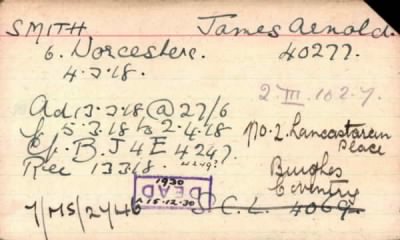 SMITH, James Arnold.
6. Worcesters. 40277.
4.3.18.
2.III.102.7.
Ad 13.3.18, @ 27/6
5.3.18 to 2.4.18
No. 2. Lancastarian Place
B.J4E 4247.
Rec 13318.
Coventry
1930
DEAD
15.12.30
7/MS/2746 S.C.L. 4069.